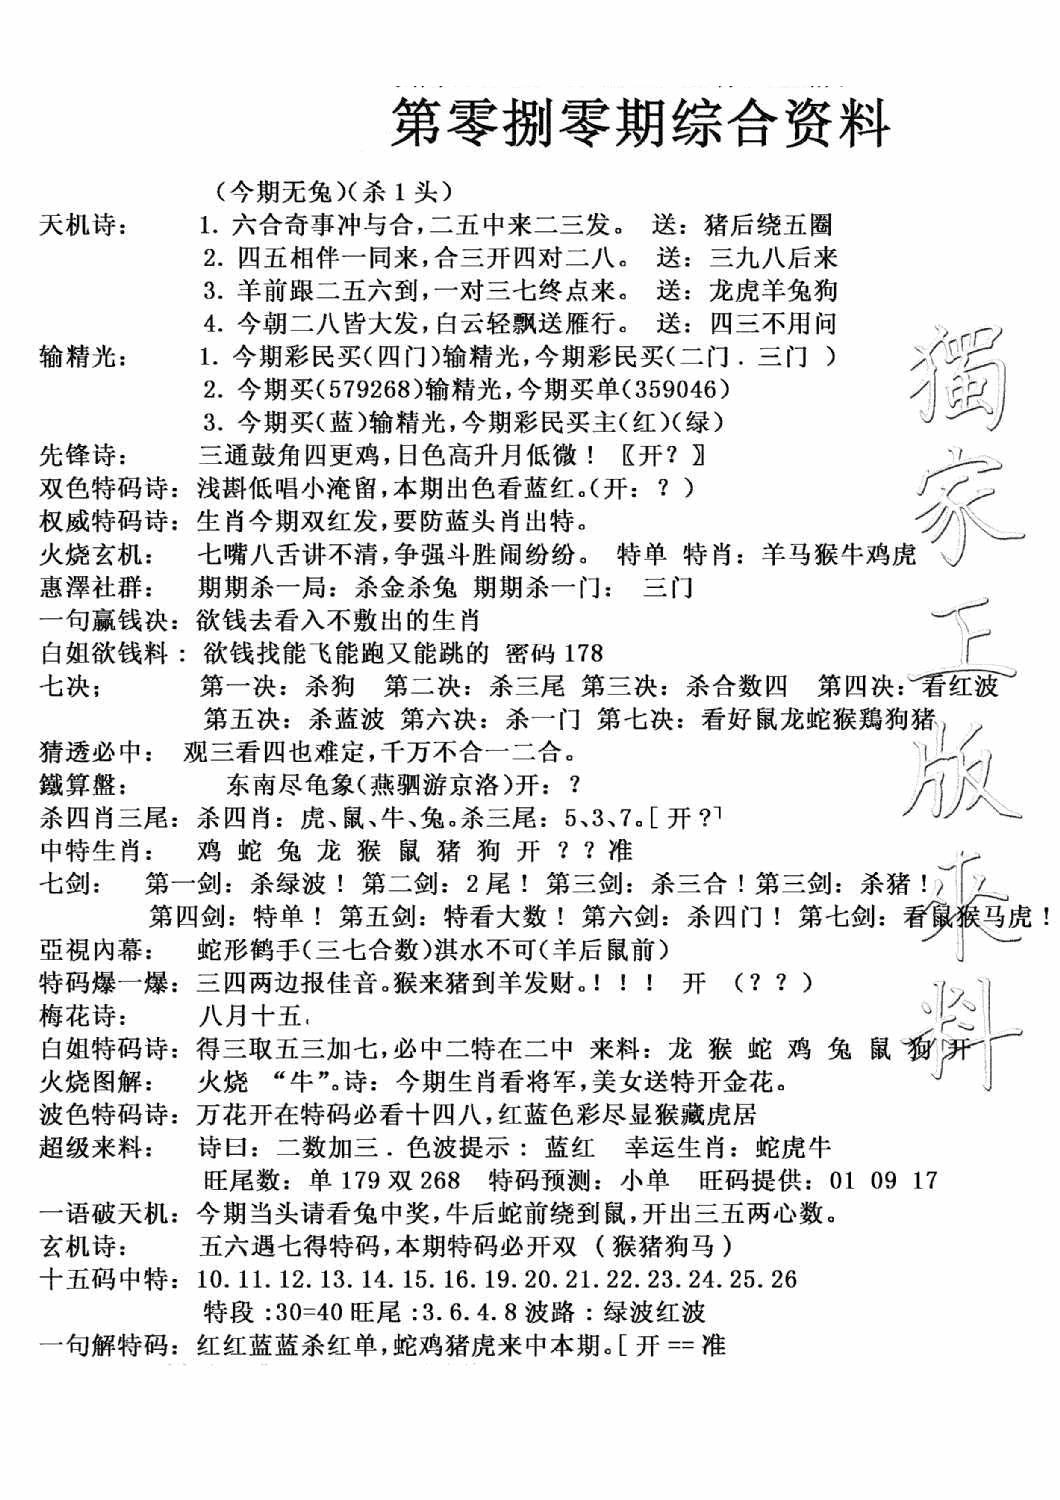 第零捌零期综合资料
（今期无兔）（杀1头）
天机诗： 1. 六合奇事冲与合，二五中来二三发。 送：猪后绕五圈
2. 四五相伴一同来，合三开四对二八。 送：三九八后来
3. 羊前跟二五六到，一对三七终点来。 送：龙虎羊兔狗
4. 今朝二八皆大发，白云轻飘送雁行。 送：四三不用问
输精光： 1. 今期彩民买(四门)输精光，今期彩民买(二门．三门 ）
2. 今期买(579268)输精光，今期买单(359046)
3. 今期买(蓝)输精光，今期彩民买主(红)(绿)
先锋诗： 三通鼓角四更鸡，日色高升月低微！〖开？〗
双色特码诗：浅斟低唱小淹留，本期出色看蓝红。(开：？)
权威特码诗：生肖今期双红发，要防蓝头肖出特。
火烧玄机： 七嘴八舌讲不清，争强斗胜闹纷纷。 特单 特肖：羊马猴牛鸡虎
惠澤社群： 期期杀一局：杀金杀兔 期期杀一门： 三门
一句赢钱决：欲钱去看入不敷出的生肖
白姐欲钱料： 欲钱找能飞能跑又能跳的 密码178
七决； 第一决：杀狗 第二决：杀三尾 第三决：杀合数四 第四决：看红波
第五决：杀蓝波 第六决：杀一门 第七决：看好鼠龙蛇猴鶏狗猪
猜透必中： 观三看四也难定，千万不合一二合。
鐵算盤： 东南尽龟象(燕驷游京洛)开：？
杀四肖三尾：杀四肖：虎、鼠、牛、兔。杀三尾：5、3、7。[开?]
中特生肖： 鸡 蛇 兔 龙 猴 鼠 猪 狗 开 ？？准
七剑： 第一剑：杀绿波！第二剑：2尾！第三剑：杀三合！第三剑：杀猪！
第四剑：特单！第五剑：特看大数！第六剑：杀四门！第七剑：看鼠猴马虎！
亞視內幕： 蛇形鹤手(三七合数)淇水不可(羊后鼠前)
特码爆一爆：三四两边报佳音。猴来猪到羊发财。！！！ 开 （？？）
梅花诗： 八月十五.
白姐特码诗：得三取五三加七，必中二特在二中 来料：龙 猴 蛇 鸡 兔 鼠 狗 开
火烧图解： 火烧 “牛”。诗：今期生肖看将军，美女送特开金花。
波色特码诗：万花开在特码必看十四八，红蓝色彩尽显猴藏虎居
超级来料： 诗曰：二数加三．色波提示：蓝红 幸运生肖：蛇虎牛
旺尾数：单179双268 特码预测：小单 旺码提供：01 09 17
一语破天机：今期当头请看兔中奖，牛后蛇前绕到鼠，开出三五两心数。
玄机诗： 五六遇七得特码，本期特码必开双 （猴猪狗马）
十五码中特：10.11.12.13.14.15.16.19.20.21.22.23.24.25.26
特段:30=40旺尾:3.6.4.8波路：绿波红波
一句解特码：红红蓝蓝杀红单，蛇鸡猪虎来中本期。[开==准
獨家正版來料